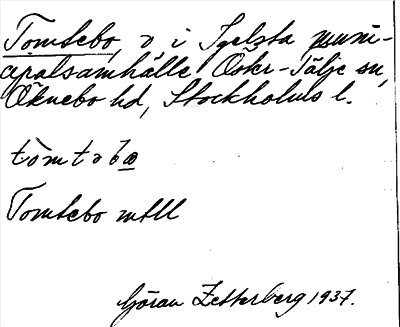 Tomtebo, v, i Igelsta muni-
cipalsamhälle Öster-Tälje sn,
Öknebo hd, Stockholms l.
Tomtebo mtll
Göran Zetterberg 1937.